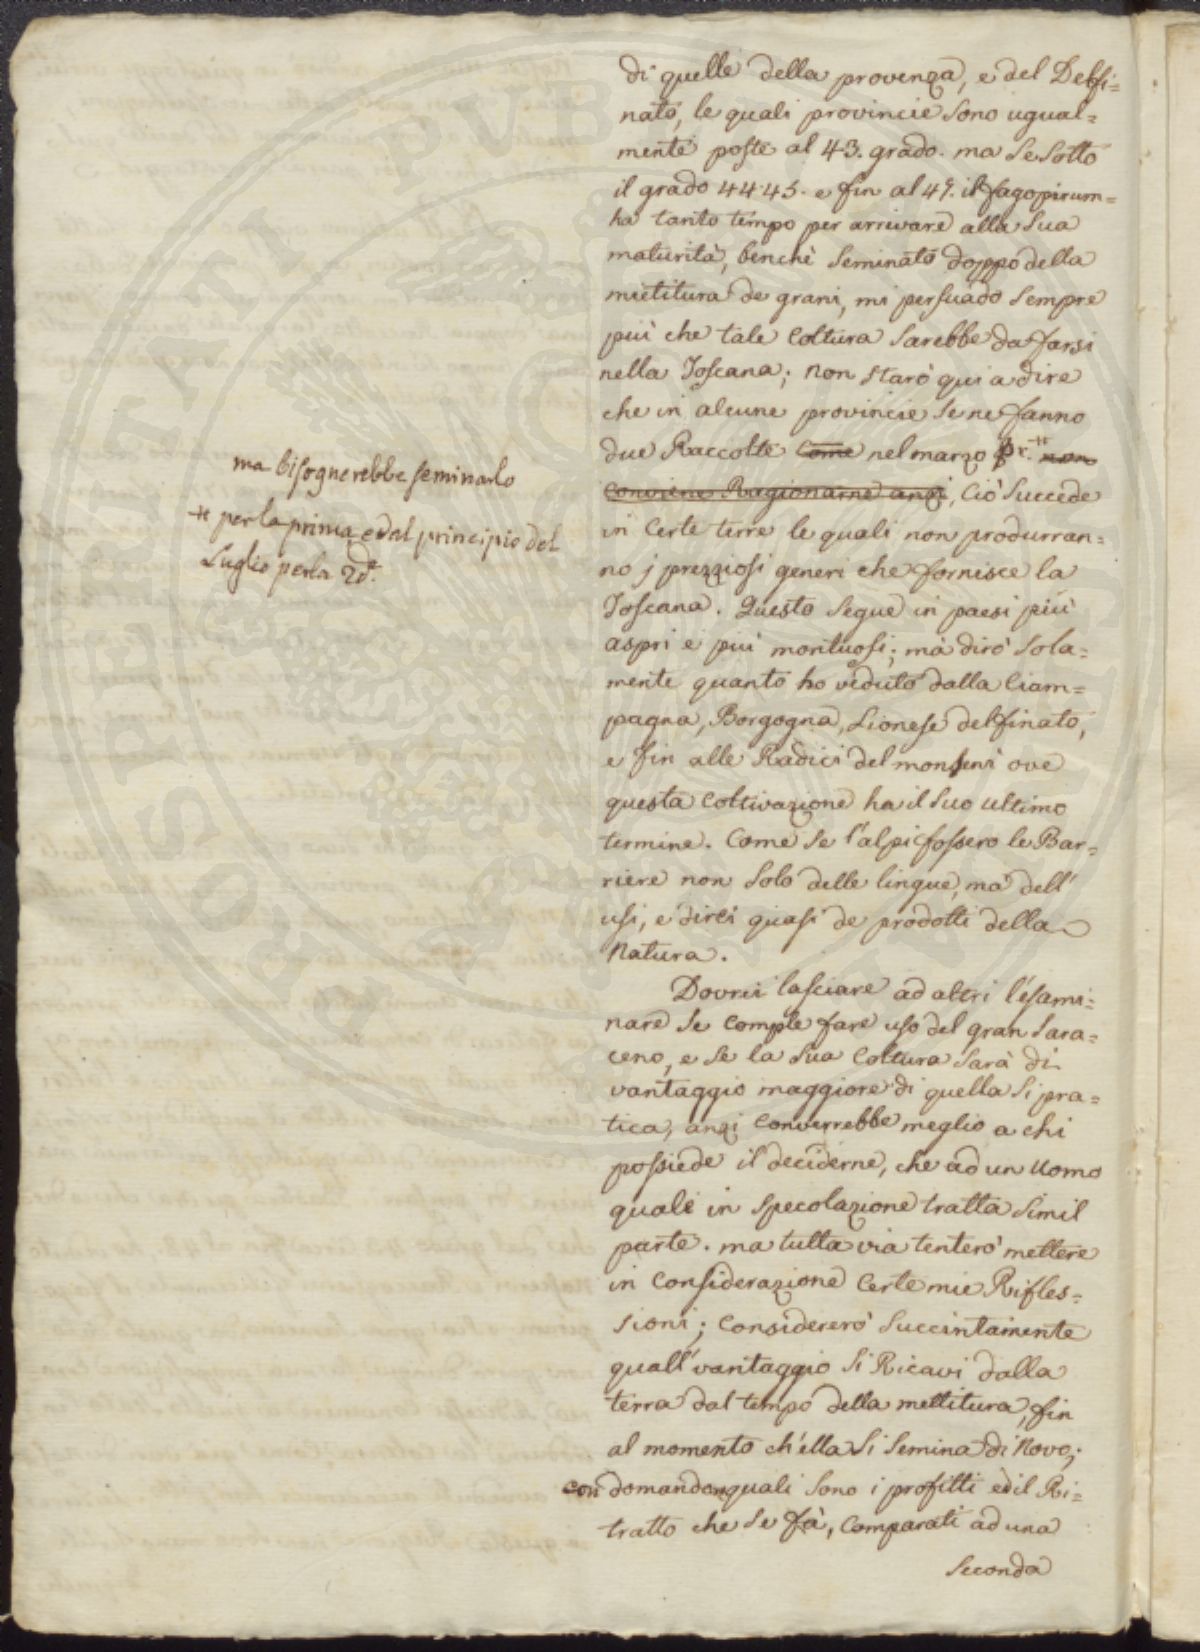 di quelle della provenza, e del Delfi=
nato, le quali provincie sono ugual=
mente poste al 43. grado. ma se sotto
il grado 44 45. e fin al 49. il fagopirum=
ha tanto tempo per arrivare alla sua
maturità, benchè seminato doppo della
mietitura de grani, mi persuado sempre
più che tale coltura sarebbe da farsi
nella Toscana; non starò qui a dire
che in alcune provincie se ne fanno
due Raccolte come nel marzo pr. # non
conviene Ragionarne anzi, ciò succede
in certe terre le quali non produrran=
no j prezziosi generi che fornisce la
Toscana. Questo segue in paesi più
aspri e più montuosi; mà dirò sola=
mente quanto ho veduto dalla Ciam=
pagna, Borgogna, Lionese delfinato,
e fin alle Radici del monsenì ove
questa coltivazione ha il suo ultimo
termine. Come se l'alpi fossero le Bar=
riere non solo delle lingue, mà dell'
usi, e direi quasi de prodotti della
Natura.
Dovrei lasciare ad altri l'esami=
nare se comple fare uso del gran sara=
ceno, e se la sua coltura sarà di
vantaggio maggiore di quella si pra=
tica, anzi converrebbe meglio a chi
possiede il deciderne, che ad un uomo
quale in specolazione tratta simil
parte. ma tutta via tenterò mettere
in considerazione certe mie Rifles=
sioni; considererò succintamente
quall'vantaggio si Ricavi dalla
terra dal tempo della mettitura, fin
al momento ch'ella si semina di Novo;
con domandon quali sono i profitti ed il Ri=
tratto che se fà, comparati ad una
seconda
ma bisognerebbe seminarlo
# per la prima e dal principio del
Luglio per la 2da.